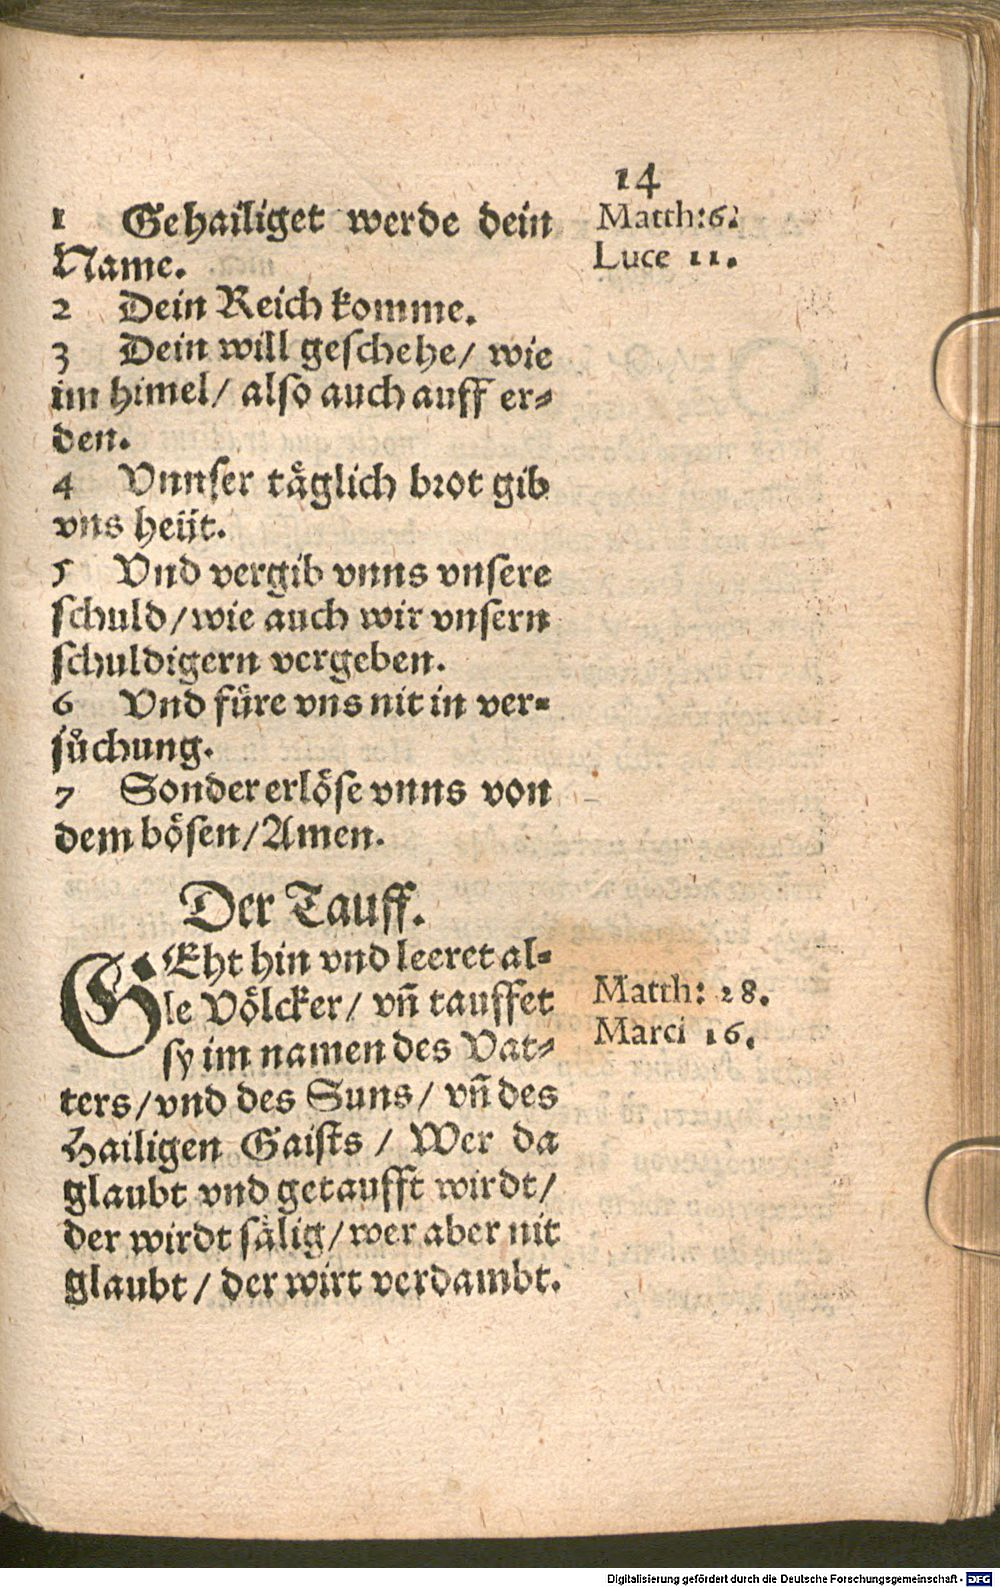 14
1 Gehailiget werde dein
Name.
Matth: 6.
Luce 11.
2 Dein Reich komme.
3 Dein will geschehe/ wie
im himel/ also auch auff er-
den.
4 Vnnser täglich brot gib
vns heüt.
5 Vnd vergib vnns vnsere
schuld/wie auch wir vnsern
schuldigern vergeben.
6 Vnd füre vns nit in ver-
sůchung.
7 Sonder erlöse vnns von
dem bösen/Amen.
Der Tauff.
GEht hin vnd leeret al-
le Völcker/ vñ tauffet
sy im namen des Vat-
ters/vnd des Suns/ vñ des
Hailigen Gaists / Wer da
glaubt vnd getaufft wirdt/
der wirdt sälig/wer aber nit
glaubt/ der wirt verdambt.
Matth: 28.
Marci 16.
Digitalisierung gefördert durch die Deutsche Forschungsgemeinschaft - DFG